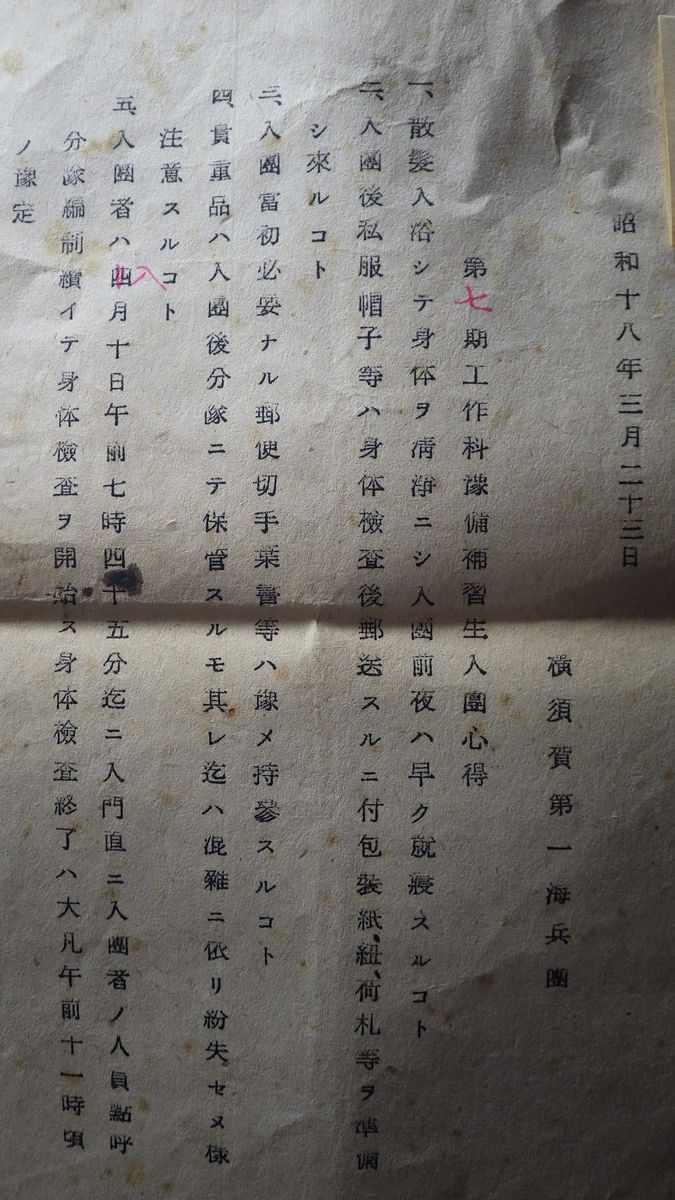 昭和十八年三月二十三日
横須賀第一海兵團
第七期工作科豫備補習生入團心得
一、散髮入浴シテ身体ヲ清淨ニシ入團前夜ハ早ク就寢スルコト
二、入團後私服帽子等ハ身体檢査後郵送スルニ付包裝紙、紐、荷札等ヲ準備
シ來ルコト
三、入團當初必要ナル郵便切手葉書等ハ豫メ持參スルコト
四、貴重品ハ入團後分隊ニテ保管スルモ其レ迄ハ混雜ニ依リ紛失セヌ樣
注意スルコト
五、入團者ハ四八月十日午前七時四十五分迄ニ入門直ニ入團者ノ人員點呼
分隊編制續イテ身体檢査ヲ開始ス身体檢査終了ハ大凡午前十一時頃
ノ豫定